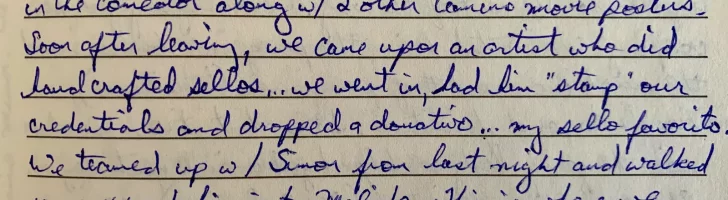 in the comedor along w/ 2 other Camino movie posters.
Soon after leaving, we came upon an artist who did
handcrafted sellos,... we went in, had him "stamp" our
credentials and dropped a donativo... my sello favorito
We teamed up w/ Simon from last night and walked